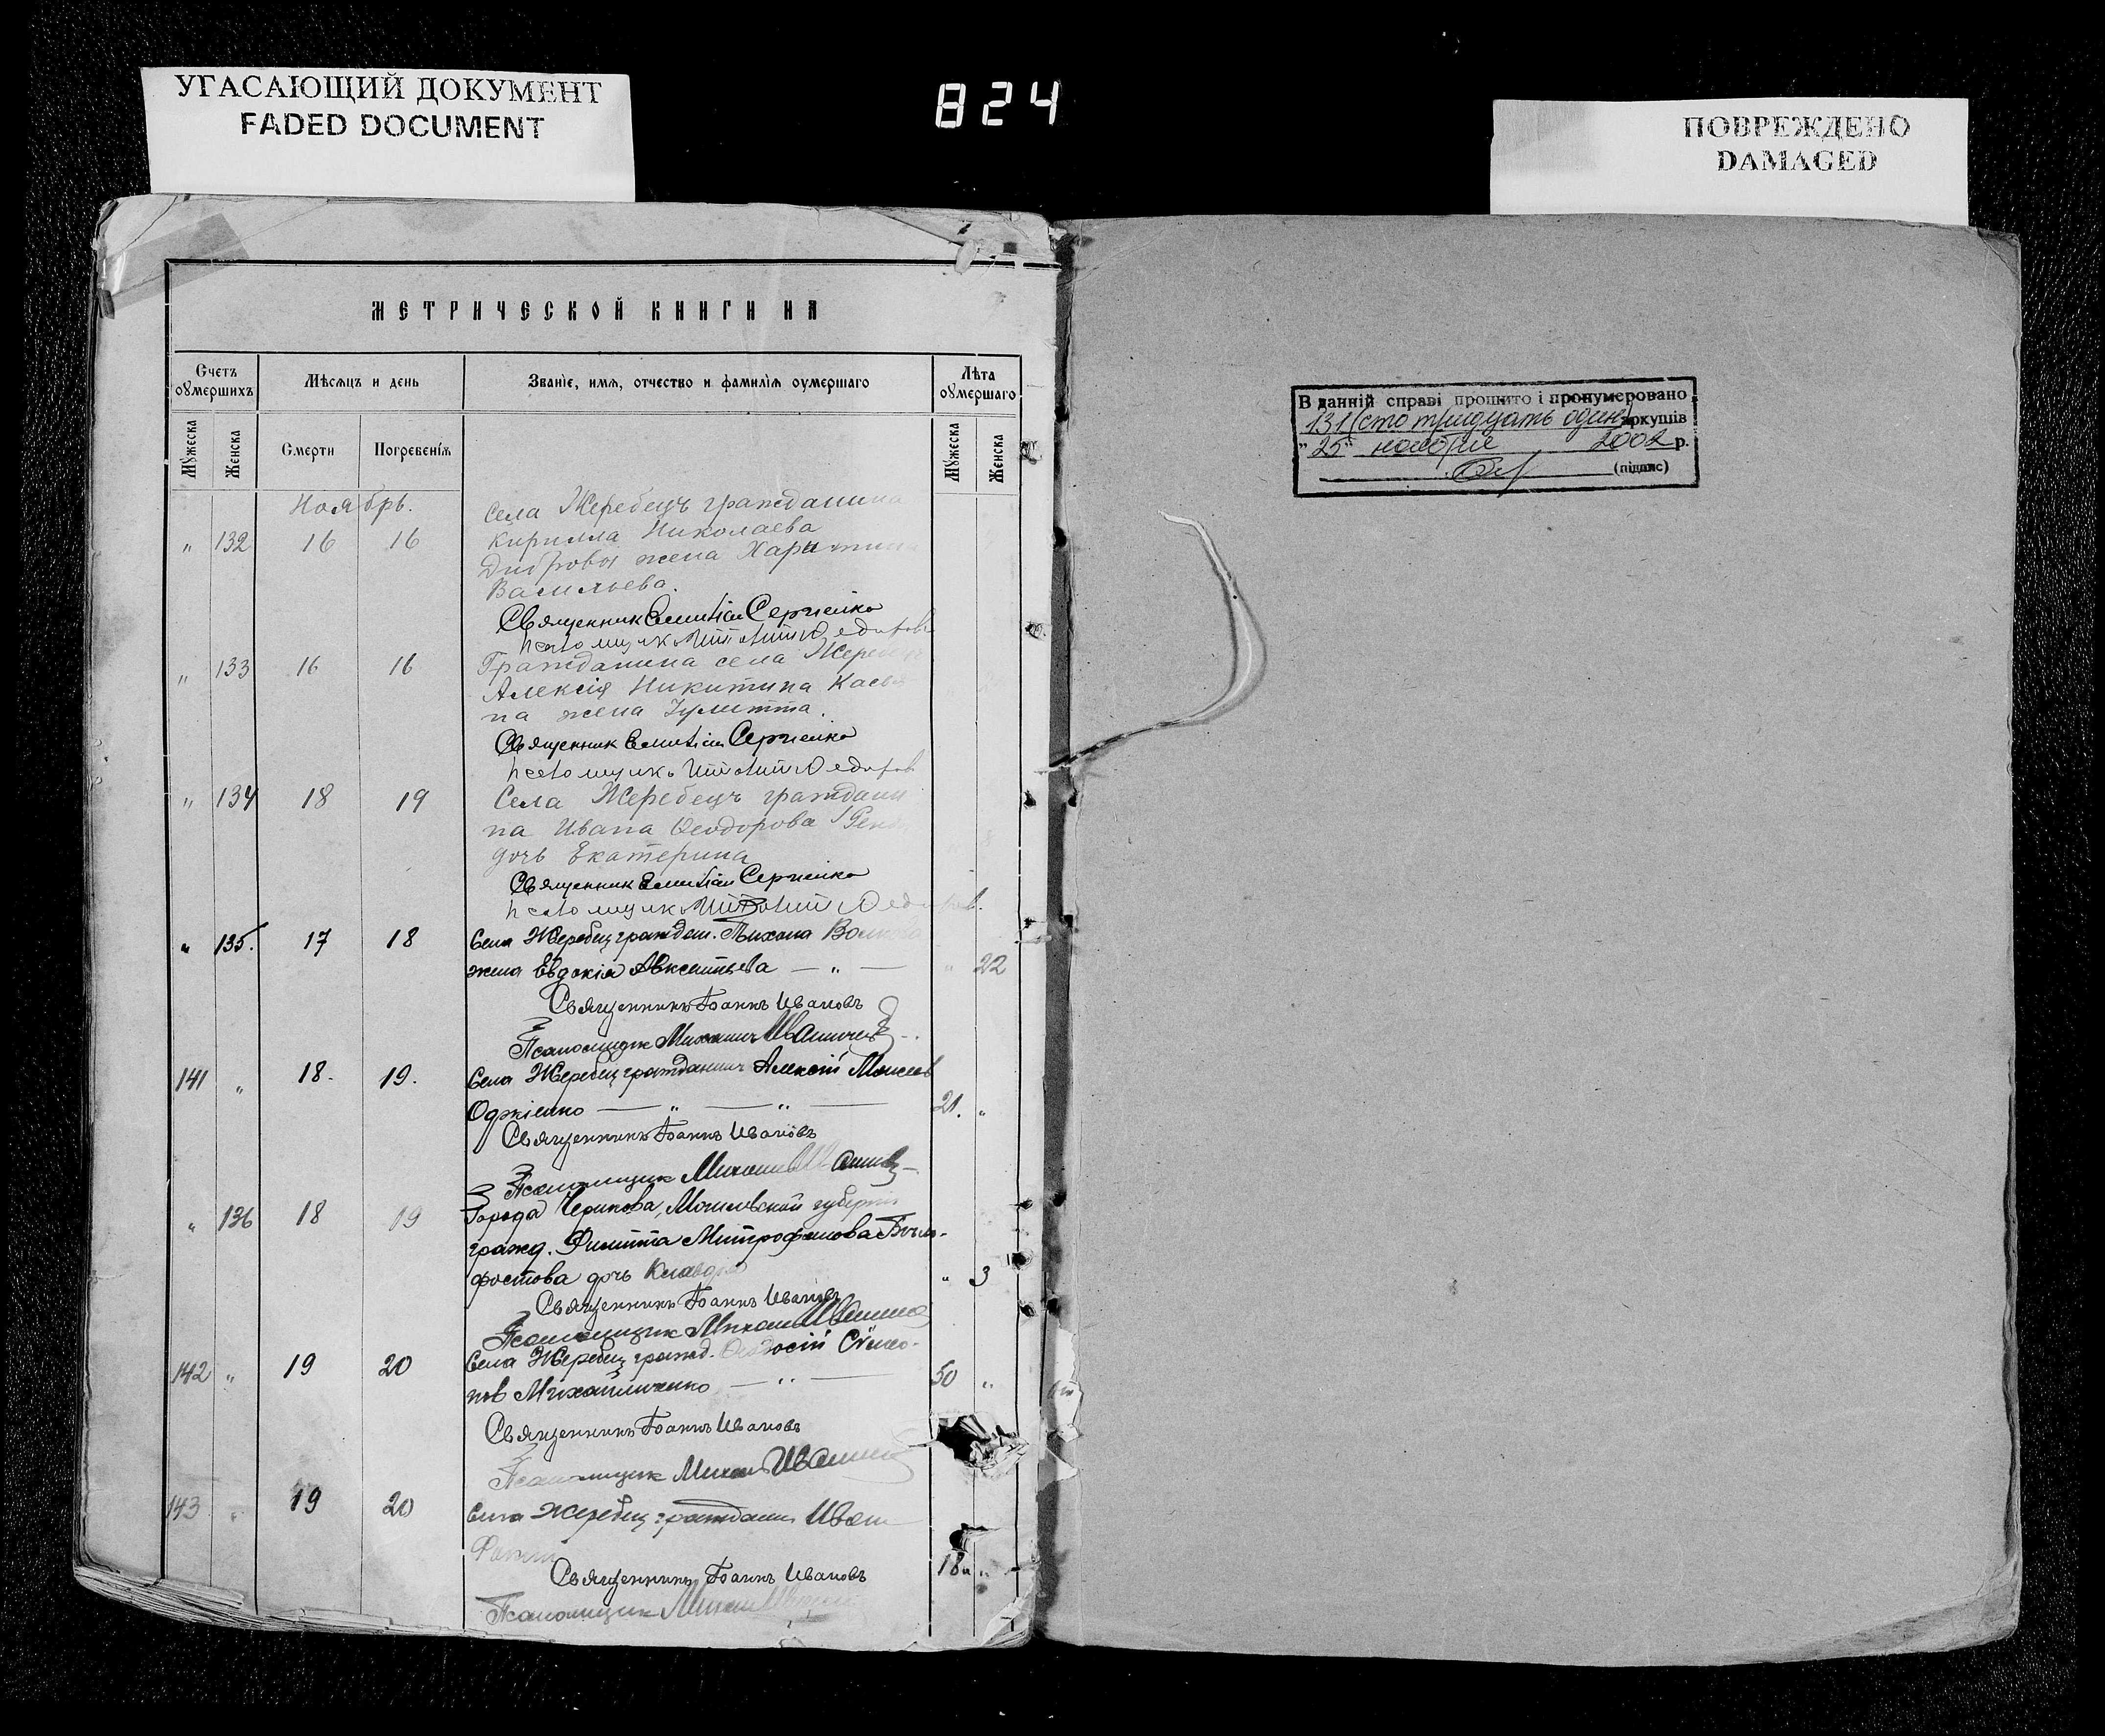 УГАСАЮЩИЙ ДОКУМЕНТ
FADED DOCUMENT
824
ПОВРЕЖДЕНО
DAMAGED
МЕТРИЧЕСКОЙ КНИГИ НА
Счетъ оумершихъ
Мѣсяцъ и день
Званіе, имя, отчество и фамилія оумершаго
Лѣта оумершаго
Мужеска
Женска
Смерти
Погребенія
Мужеска
Женска
Ноябрь.
Села Жеребецъ гражданина
" 132 16 16 Кирилла Николаева
Диброва жена Харитина
Васильева.
Священник Емилиан Сергиенко
Псаломщикъ
" 133 16 16 Гражданина села Жеребец
Алексія Никитина
на жена Іулитта.
Священник Емилиан Сергиенко
Псаломщикъ
" 134 18 19 Села Жеребецъ граждани
на Ивана Феодорова
дочь Екатерина
Священник Емилиан Сергиенко
Псаломщикъ
" 135. 17 18 Села Жеребец граждан. Тихона
жена Евдокія Авксентьева — " — " 22
Священникъ Іоаннъ Ивановъ
Псаломщик Михаил
141 " 18. 19. Села Жеребец гражданин Алексій Моисеев
Оджіенко — " — " — 21. "
Священникъ Іоаннъ Ивановъ
Псаломщик Михаил
" 136 18 19 Города Черикова, Могилевской губернии
гражд. Филиппа Митрофанова
фостова дочь Клавдия " 3
Священникъ Іоаннъ Ивановъ
Псаломщик Михаил
142 " 19 20 Села Жеребец гражд. Феодосій Симео-
нов Михайличенко — " — 50 "
Священникъ Іоаннъ Ивановъ
Псаломщик Михаил
143 " 19 20 Села Жеребец гражданин Иван
Священникъ Іоаннъ Ивановъ
Псаломщик Михаил
В данній справі прошито і пронумеровано
131 (сто тридцать один) аркушів
"25" ноября 2002 р.
(підпис)